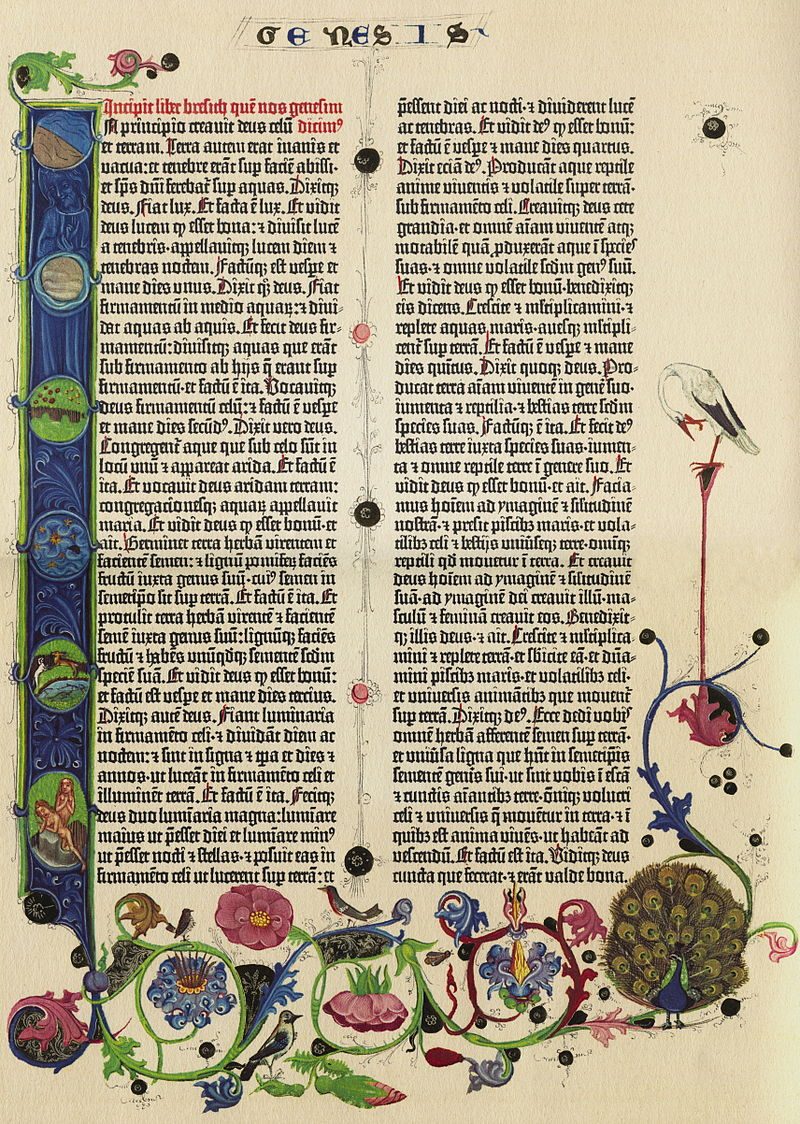 GENESIS
Incipit liber bresich quē nos genesim
IN principio creavit deus celū dicim⁹
et terram. Terra autem erat inanis et
vacua: et tenebre erāt sup faciē abissi.
et sp̄s dn̄i ferebat᷑ sup aquas. Dixitq;
deus. Fiat lux. Et facta ē lux. Et vidit
deus lucem qꝫ esset bona: ⁊ divisit lucē
a tenebris. appellavitq; lucem diem ⁊
tenebras noctem. Factūq; est vespe et
mane dies unus. Dixit qꝫ deus. Fiat
firmamentū in medio aquaꝝ: ⁊ divi-
dat aquas ab aquis. Et fecit deus fir-
mamentū: divisitq; aquas que erāt
sub firmamento ab hijs q̄ erant sup
firmamentū. et factū ē ita. Vocavitq;
deus firmamentū celū: ⁊ factū ē vespe
et mane dies secūd⁹. Dixit vero deus.
Congregent᷑ aque que sub celo sūt in
locū unū ⁊ appareat arida. Et factū ē
ita. Et vocavit deus aridam terram:
congregacionesq; aquaꝝ appellavit
maria. Et vidit deus qꝫ esset bonū. et
ait. Germinet terra herbā virentem et
facientē semen: ⁊ lignū pomiferꝫ faciēs
fructū iuxta genus suū. cui⁹ semen in
semetipo sit sup terrā. Et factū ē ita. Et
protulit terra herbā virentē ⁊ facientē
semē iuxta genus suū: lignūq; faciēs
fructū ⁊ habēs unūqdq; sementē scdm
speciē suā. Et vidit deus qꝫ esset bonū:
et factū est vespe et mane dies tercius.
Dixitq; autē deus. Fiant luminaria
in firmamēto celi. ⁊ dividāt diem ac
noctem: ⁊ sint in signa ⁊ tp̄a et dies ⁊
annos. ut luceāt in firmamēto celi et
illuminēt terrā. Et factū ē ita. Fecitq;
deus duo lumīaria magna: lumīare
maius ut p̄esset diei et lumīare min⁹
ut p̄esset nocti ⁊ stellas. ⁊ posuit eas in
firmamēto celi ut lucerent sup terrā: et
p̄essent diei ac nocti. ⁊ dividerent lucē
ac tenebras. Et vidit de⁹ qꝫ esset bonū:
et factū ē vespe ⁊ mane dies quartus.
Dixit eciā de⁹. Producāt aque reptile
anime viventis ⁊ volatile super terrā.
sub firmamēto celi. Creavitq; deus cete
grandia. et omnē aīam viventē atq;
motabilē quā ꝓduxerāt aque ī species
suas. ⁊ omne volatile scdm gen⁹ suū.
Et vidit deus qꝫ esset bonū. benedixitq;
eis dicens. Crescite ⁊ mltiplicamini. ⁊
replete aquas maris. avesq; mltipli-
cent᷑ sup terrā. Et factū ē vespe ⁊ mane
dies quītus. Dixit quoq; deus. Pro-
ducat terra aīam viventē in genē suo.
iumenta ⁊ reptilia. ⁊ bestias terre scdm
species suas. Factūq; ē ita. Et fecit de⁹
bestias terre iuxta species suas. iumen-
ta ⁊ omne reptile terre ī genere suo. Et
vidit deus qꝫ esset bonū. et ait. Facia-
mus hoīem ad ymaginē ⁊ silitudinē
nostrā. ⁊ presit piscibꝫ maris. et vola-
tilibꝫ celi ⁊ bestijs univseq; terre. omīq;
reptili qd movetur ī terra. Et creavit
deus hoīem ad ymaginē et silitudinē
suā. ad ymaginē dei creavit illū. ma-
sculū ⁊ feminā creavit eos. Benedixit-
q; illis deus. ⁊ ait. Crescite ⁊ mltiplica-
mini ⁊ replete terrā. et sbicite eā. et dn̄a-
mini piscibꝫ maris. et volatilibꝫ celi.
et universis animātibꝫ que movent᷑
sup terrā. Dixitq; de⁹. Ecce dedi vobis
omnē herbā afferentē semen sup terrā.
et univsa ligna que hn̄t in semetip̄is
sementē genis sui. ut sint vobis ī escā
⁊ cunctis aīantibꝫ terre. om̄iq; volucri
celi ⁊ universis q̄ movent᷑ in terra. ⁊ ī
quibꝫ est anima vivēs. ut habeāt ad
vescendū. Et factū est ita. Viditq; deus
cuncta que fecerat. ⁊ erāt valde bona.